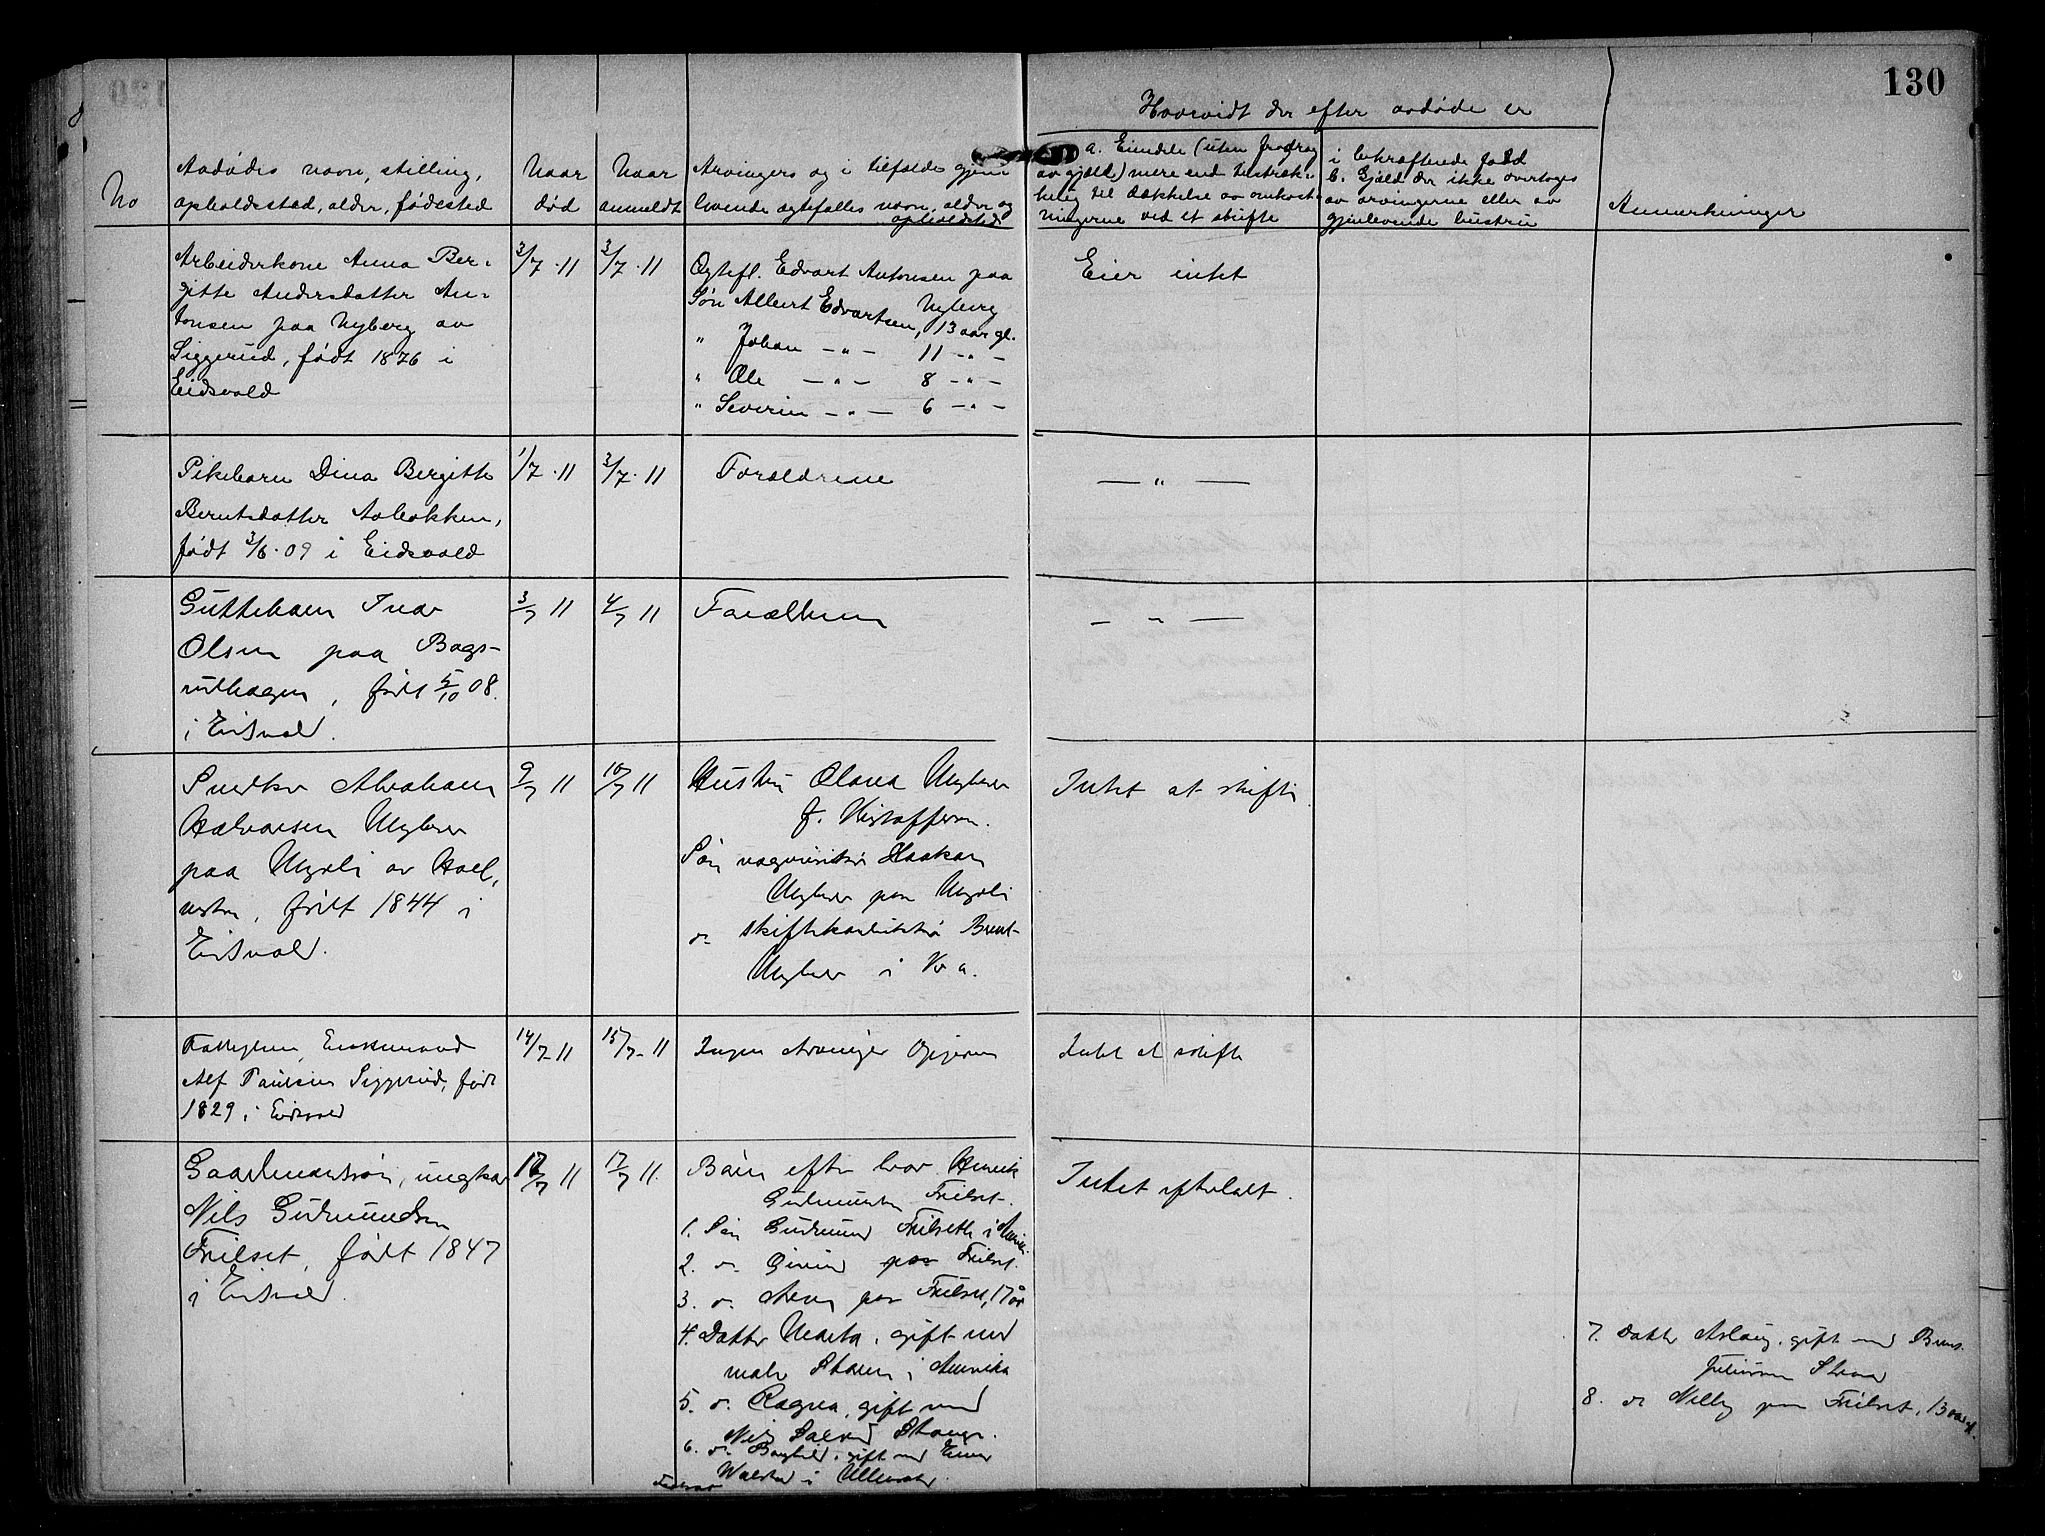 130
Hvorvidt der efter avdøde er
No
Avdødes navn, stilling,
opholdssted, alder, fødested
Naar
død
Naar
anmeldt
Arvingers og i tilfælde gjen-
levende egtefælles navn, alder og
opholdssted
a. Eiendele (uten fradrag
av gjæld) mere end tilstræk-
kelig til dækkelse av omkost-
ningerne ved et skifte
i bekræftende fald
b. Gjæld der ikke overtages
av arvingerne eller av
gjenlevende hustru
Anmerkninger
Arbeiderkone Anna Ber-
gitte Andersdatter An-
tonsen paa Nyberg av
Siggerud, født 1876 i
Eidsvold
3/7 - 11
3/7 - 11
Egtefl. Edvart Antonsen paa
Nyberg
Søn Albert Edvartsen, 13 aar gl.
" Johan — " — 11 — " —
" Ole — " — 8 — " —
" Severin — " — 6 — " —
Eier intet
Pikebarn Dina Bergitte
Berntsdatter Aabakken,
født 3/6 - 09 i Eidsvold
1/7 - 11
3/7 - 11
Forældrene
— " —
Guttebarn Ivar
Olsen paa Bags-
rudhagen, født 5/10 08.
i Eidsvold.
3/7 11
4/7 11
Forældrene
— " —
Snedker Abraham
Halvorsen Myhrer
paa Myrli av Hoel,
vestre, født 1844 i
Eidsvold.
9/7 11
10/7 11
Hustru Olava Myhrer
f. Kristoffersen.
Søn vognvisitør Haakon
Myhrer paa Myrli
do. skiftekontrolør Bernt
Myhrer i Kra.
Intet at skifte
Fattiglem, Enkemand
Alf Paulsen Siggerud, født
1829 i Eidsvold
14/7 - 11
15/7 - 11
Ingen Arvinger Opgivne
Intet at skifte
Gaardmandssøn, ungkar
Nils Gudmundsen
Frilset, født 1847
i Eidsvold.
17/7 11
17/7 11.
Børn efter bror Henrik
Gudmundsen Frilset.
1. Søn Gudmund Frilseth i Amerika
2. do. Eivind paa Frilset.
3. do. Arne paa Frilset, 17 år
4. Datter Marta, gift med
Stoen i Amerika
5. do. Ragna, gift med
Nils Stange.
6. do. Borghild, gift med Einar
Wolstad i Ullensaker.
7. Datter Aslaug, gift med Bernt
Juliussen
8. do. Nelly paa Frilset, 13 aar gl.